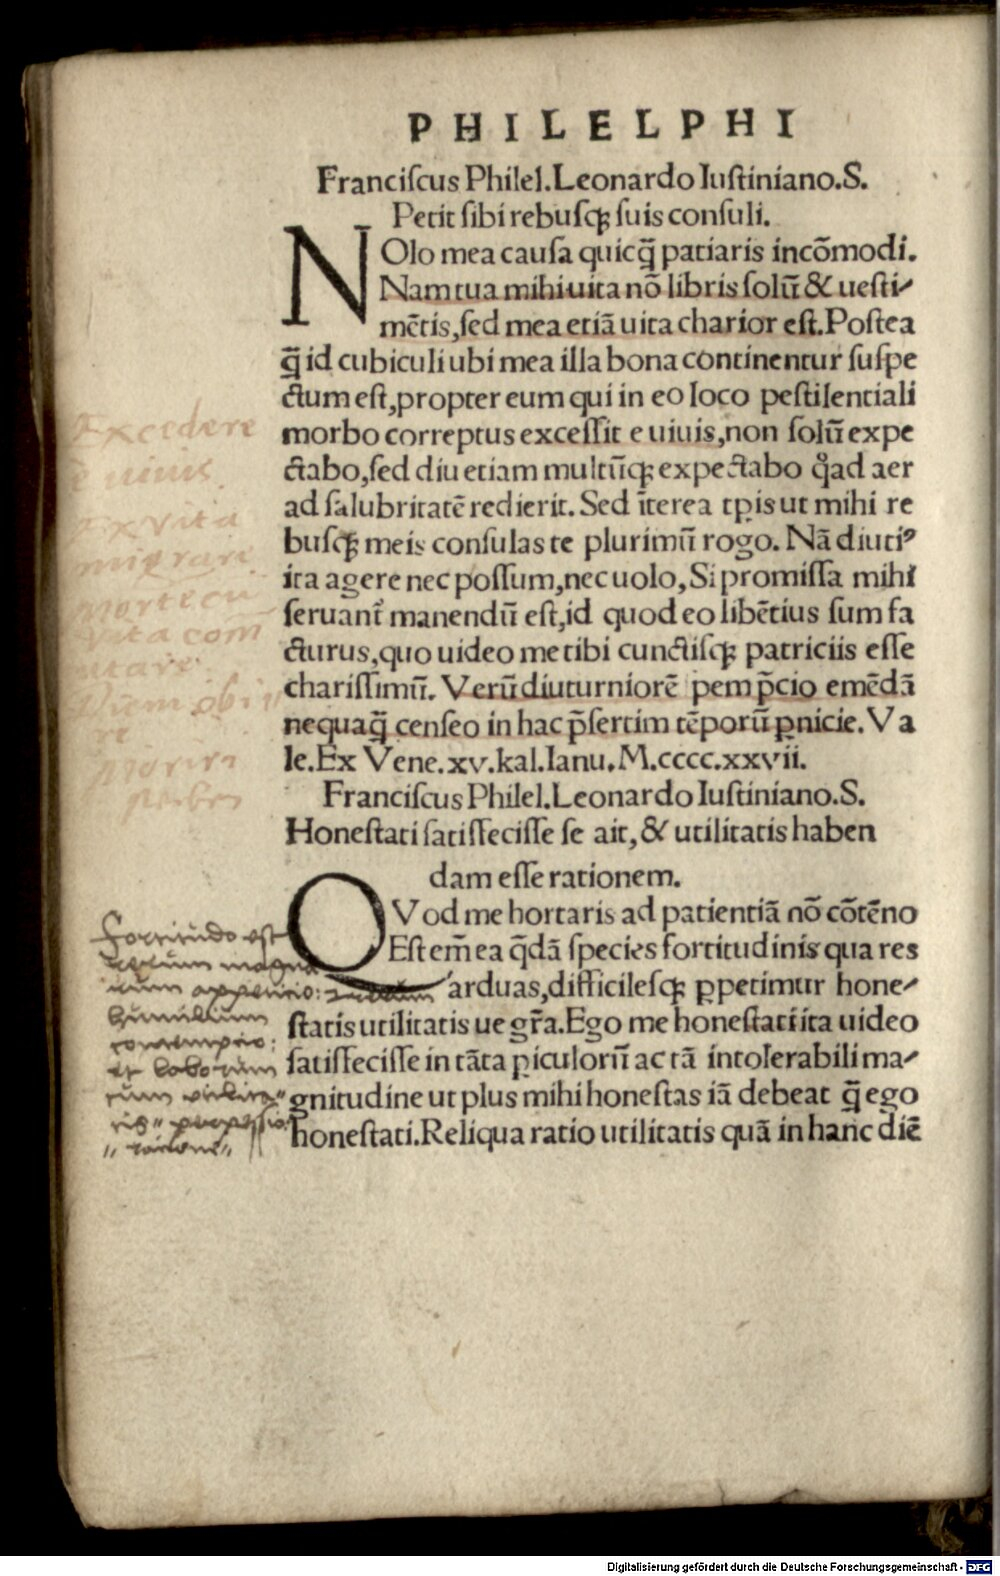 PHILELPHI
Franciſcus Philel.Leonardo Iuſtiniano.S.
Petit ſibi rebuſqꝫ ſuis conſuli.
NOlo mea cauſa quicq̄ patiaris incōmodi.
Nam tua mihi uita nō libris ſolū & ueſti-
mētis,ſed mea etiā uita charior eſt.Poſtea
q̄ id cubiculi ubi mea illa bona continentur ſuſpe
ctum eſt,propter eum qui in eo loco peſtilentiali
morbo correptus exceſſit e uiuis,non ſolū expe
ctabo,ſed diu etiam multūqꝫ expectabo q̊ad aer
ad ſalubritatē redierit. Sed īterea tꝑis ut mihi re
buſqꝫ meis conſulas te plurimū rogo. Nā diutiꝰ
ita agere nec poſſum,nec uolo,Si promiſſa mihi
ſeruant᷑ manendū eſt,id quod eo libētius ſum fa
cturus,quo uideo me tibi cunctiſqꝫ patriciis eſſe
chariſſimū. Verū diuturniorē ꝑem p̄cio emēdā
nequaq̄ cenſeo in hac p̄ſertim tēporū ꝑnicie. Va
le.Ex Vene.xv.kal.Ianu.M.cccc.xxvii.
Franciſcus Philel.Leonardo Iuſtiniano.S.
Honeſtati ſatiſfeciſſe ſe ait,& utilitatis haben
dam eſſe rationem.
QVod me hortaris ad patientiā nō cōtēno
Eſt em̄ ea q̄dā ſpecies fortitudinis qua res
arduas,difficileſqꝫ ꝑpetimur hone-
ſtatis utilitatis ue gr̄a.Ego me honeſtati ita uideo
ſatiſfeciſſe in tāta ꝑiculorū ac tā intolerabili ma-
gnitudine ut plus mihi honeſtas iā debeat q̄ ego
honeſtati.Reliqua ratio utilitatis quā in hanc diē
Excedere
è uiuis
Ex vita
migrare
Morte cū
vita com̄
utare
Diem obi
re
Moriri
Fortitudo est
rerum magna
rum appeticio:
humilium
contempcio:
et laborum
cum utilita
tis perpessio
racione
Digitalisierung gefördert durch die Deutsche Forschungsgemeinschaft - DFG